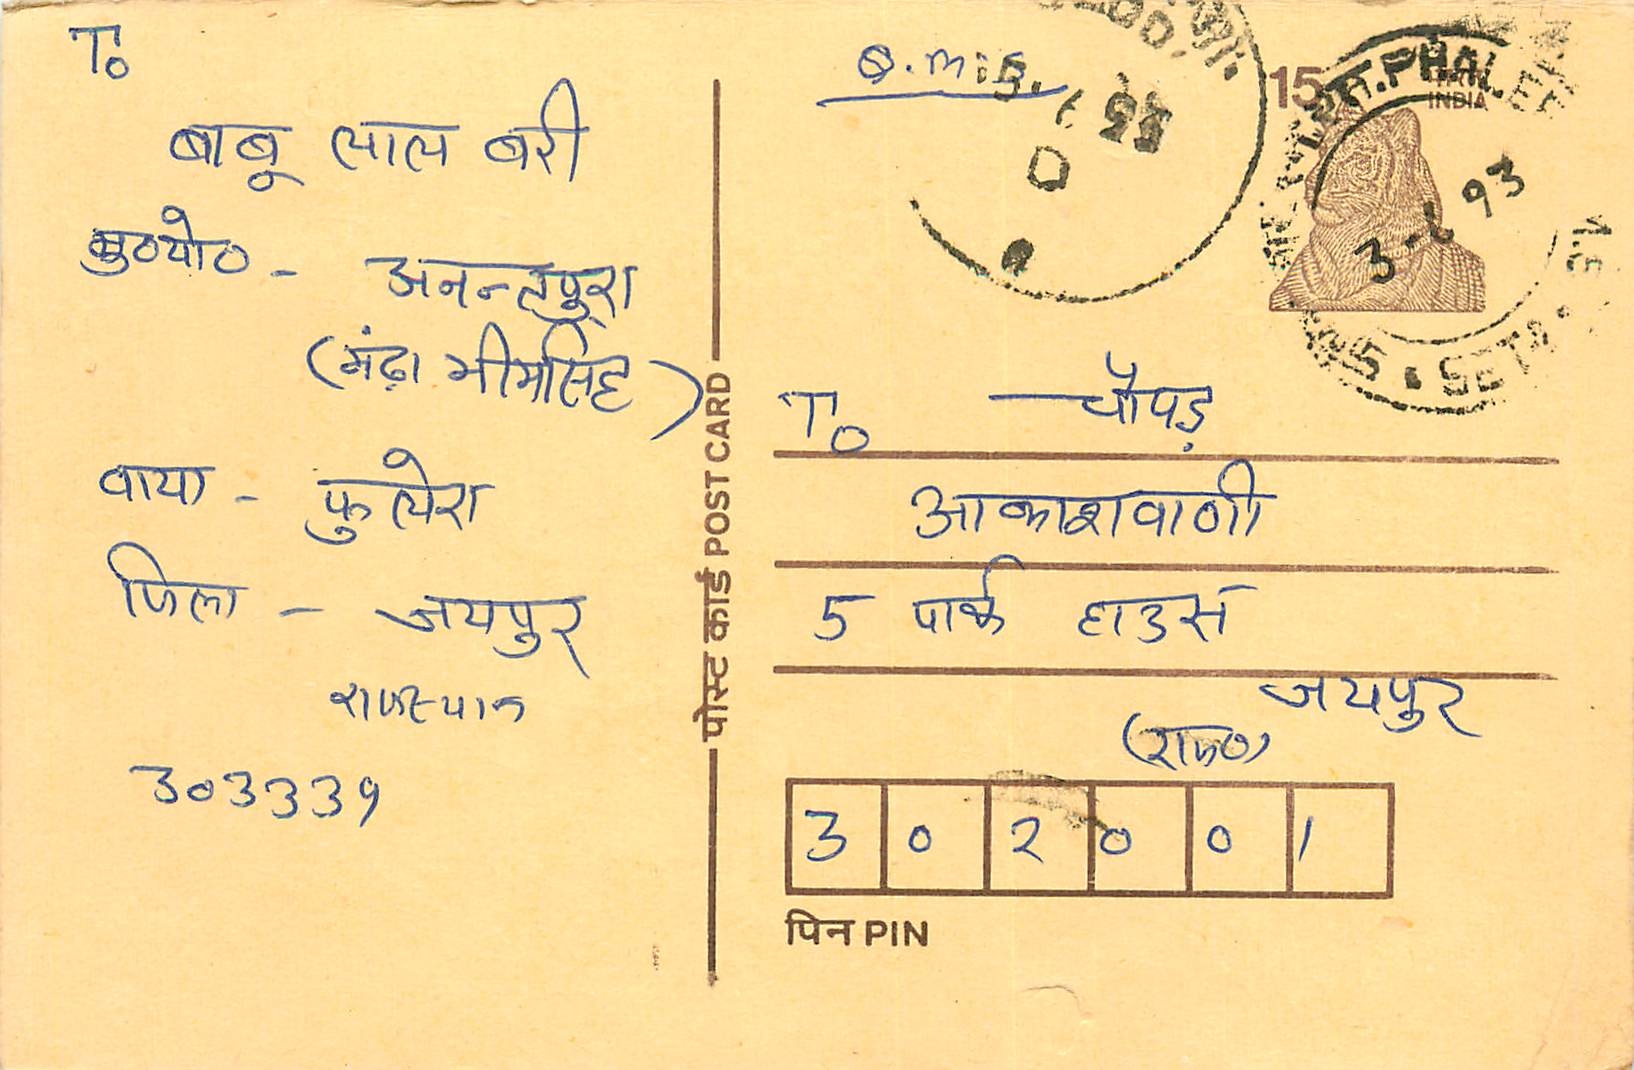 To
बाबू लाल बरी
मु०पो० - अनन्तपुरा
(मंढ़ा भीमसिंह)
वाया - फुलेरा
जिला - जयपुर
राजस्थान
303339
पोस्ट कार्ड POST CARD
15
INDIA
93
To चौपड़
आकाशवाणी
5 पार्क हाउस
जयपुर
(राज०)
302001
पिन PIN